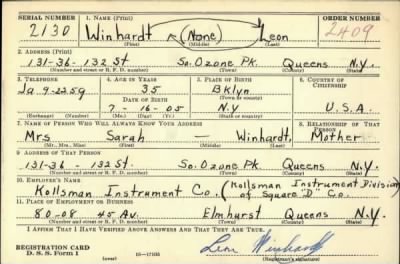 SERIAL NUMBER 1. NAME (Print) ORDER NUMBER
2130 Winhardt (None) Leon 2409
(First) (Middle) (Last)
2. ADDRESS (Print)
131-36-132 St So. Ozone Pk. Queens N.Y.
(Number and street or R. F. D. number) (Town) (County) (State)
3. TELEPHONE 4. AGE IN YEARS 5. PLACE OF BIRTH 6. COUNTRY OF CITIZENSHIP
Ja. 9-2259 35 Bklyn.
DATE OF BIRTH (Town or county)
7-16-05 N.Y U.S.A.
(Exchange) (Number) (Mo.) (Day) (Yr.) (State or country)
7. NAME OF PERSON WHO WILL ALWAYS KNOW YOUR ADDRESS 8. RELATIONSHIP OF THAT PERSON
Mrs Sarah — Winhardt, Mother
(Mr., Mrs., Miss) (First) (Middle) (Last)
9. ADDRESS OF THAT PERSON
131-36-132 St. So. Ozone Pk. Queens N.Y.
(Number and street or R. F. D. number) (Town) (County) (State)
10. EMPLOYER'S NAME
Kollsman Instrument Co. (Kollsman Instrument Division of Square "D" Co.
11. PLACE OF EMPLOYMENT OR BUSINESS
80-08 45 Av. Elmhurst Queens N.Y.
(Number and street or R. F. D. number) (Town) (County) (State)
I AFFIRM THAT I HAVE VERIFIED ABOVE ANSWERS AND THAT THEY ARE TRUE.
REGISTRATION CARD
D. S. S. Form 1 16-17105 Leon Winhardt
(Registrant's signature)